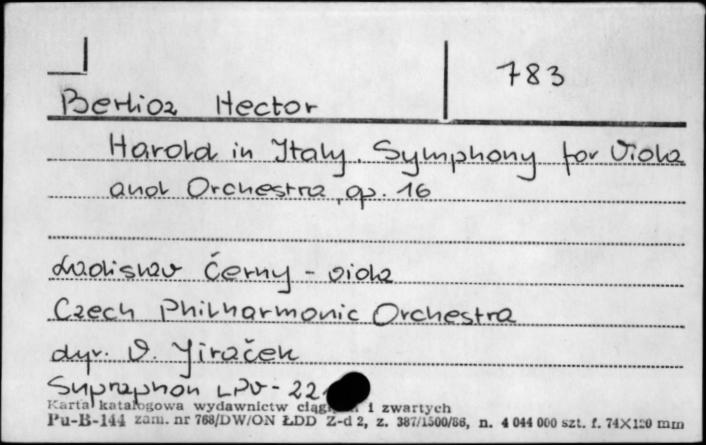 783
Berlioz Hector
Harold in Italy. Symphony for Viola
and Orchestra, op. 16
Ladislav Černy - viola
Czech Philharmonic Orchestra
dyr. V. Jiraček
Supraphon LPV - 221
Karta katalogowa wydawnictw i zwartych
Pu-B-144 zam. nr 768/DW/ON ŁDD Z-d 2, z. 387/1500/86, n. 4 044 000 szt. f. 74X120 mm